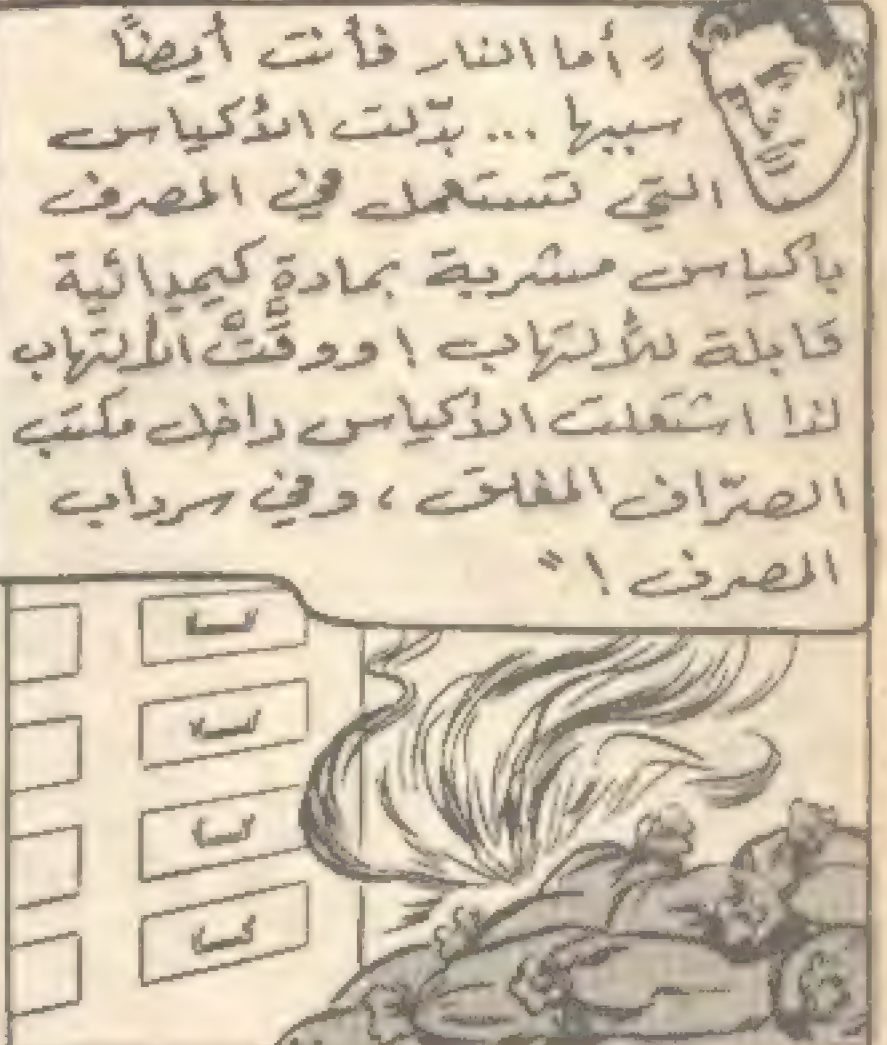 " أما النار فأنت أيضاً
سببها ... بدّلت الأكياس
التي تستعمل في المصرف
بأكياس مشربة بمادة كيميائية
قابلة للألتهاب ! ووقّتَّ الألتهاب
لذا اشتعلت الأكياس داخل مكتب
الصرّاف المغلق ، وفي سرداب
المصرف ! "